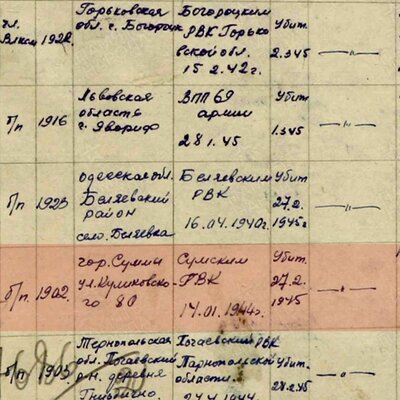 чл. Влксм 1922. Горьковская обл. г. Богородск Богородским РВК Горьковской обл. 15.2.42г. Убит 2.3.45 —"—
б/п 1916 Львовская область г. Яворив ВПП 69 армии 28.1.45 Убит 1.3.45 —"—
б/п 1923 Одесская обл. Беляевский район село. Беляевка Беляевским РВК 16.04.1940г. Убит 27.2. 1945г —"—
б/п 1902. гор. Суммы ул. Куликовского 80 Сумским РВК 14.01.1944г. Убит. 27.2. 1945 —"—
б/п 1903 Тернопольская обл. Почаевский р-н. деревня Почаевским РВК Тарнопольской области. Убит. 28.2.45 —"—